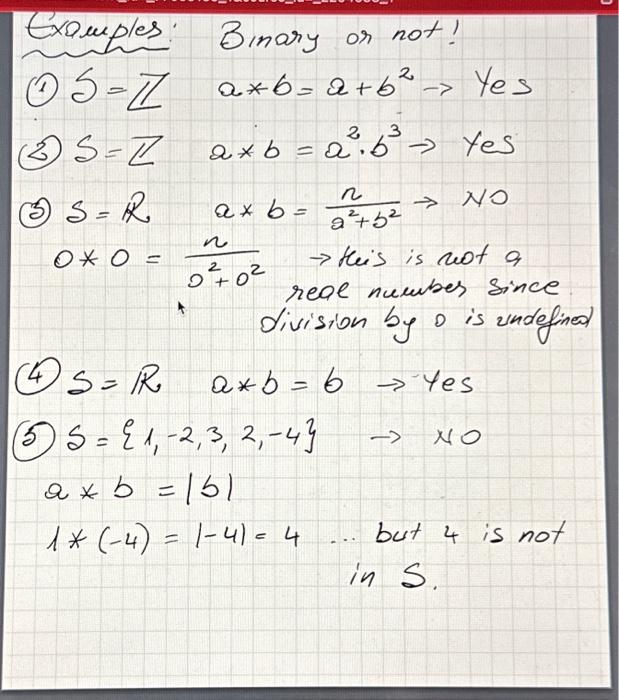 Examples: Binary or not!
① S = ℤ a * b = a + b² → Yes
② S = ℤ a * b = a² · b³ → Yes
③ S = ℝ a * b = n / (a² + b²) → NO
0 * 0 = n / (0² + 0²) → this is not a
real number since
division by 0 is undefined
④ S = ℝ a * b = b → Yes
⑤ S = {1, -2, 3, 2, -4} → NO
a * b = |b|
1 * (-4) = |-4| = 4 ... but 4 is not
in S.